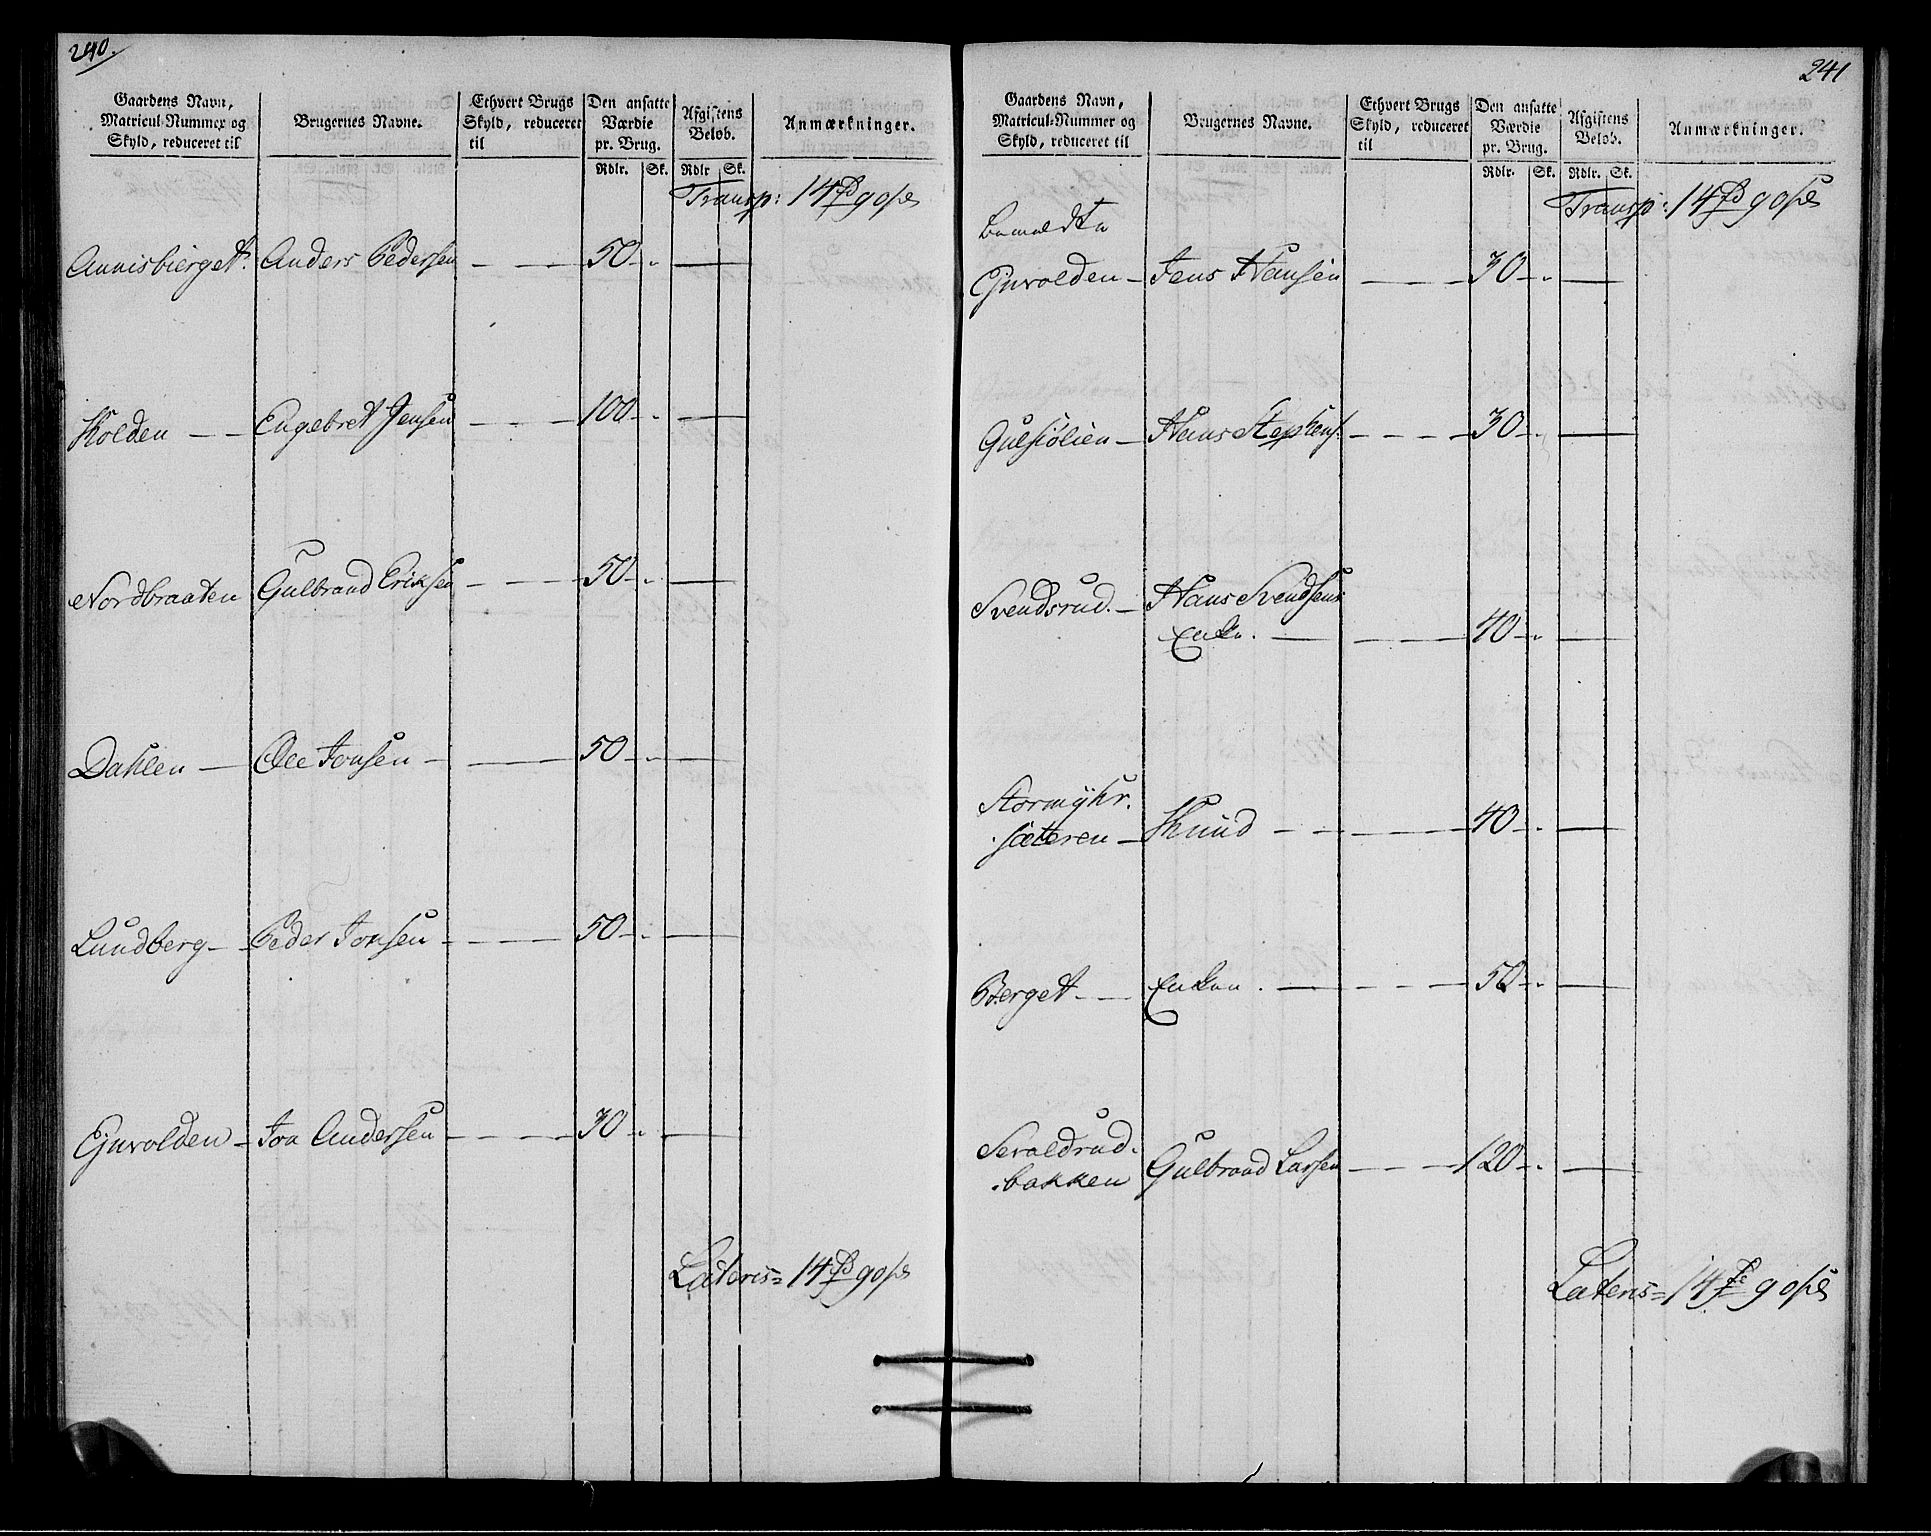 240.
Gaardens Navn, Matricul-Nummer og Skyld, reduceret til
Brugernes Navne.
Ethvert Brugs Skyld, reduceret til
Den ansatte Værdie pr. Brug.
Afgiftens Beløb.
Anmærkninger.
Rdlr. Sk. Rdlr Sk.
Transp: 14 90
Annisbierget. Anders Pedersen — — 50 - . —
Kolden — — Engebret Jensen — — 100 - . —
Nordbraaten Gulbrand Eriksen — — 50 - . —
Dahlen — Ole Jonsen — — 50 - . —
Lundberg — Peder Jonsen — — 50 - . —
Ejnvolden — Jon Andersen — — 30 - . —
Lateris = 14 90
241
Gaardens Navn, Matricul-Nummer og Skyld, reduceret til
Brugernes Navne.
Ethvert Brugs Skyld, reduceret til
Den ansatte Værdie pr. Brug.
Afgiftens Beløb.
Anmærkninger.
Rdlr. Sk. Rdlr. Sk.
Transp: 14 90
Bemeldte
Ejnvolden — Jens Hansen — — 30 - . —
Gulsiølien — Hans Stephens. — — 30 - . —
Svendsrud. — Hans Svendsens
Enke. — — 40 - . —
Stormyhr.
sæteren — Knud — — 40 - . —
Berget — — Enken . — — 50 - . —
Sevaldrud.
bakken Gulbrand Larsen — — 120 - . —
Lateris = 14 90